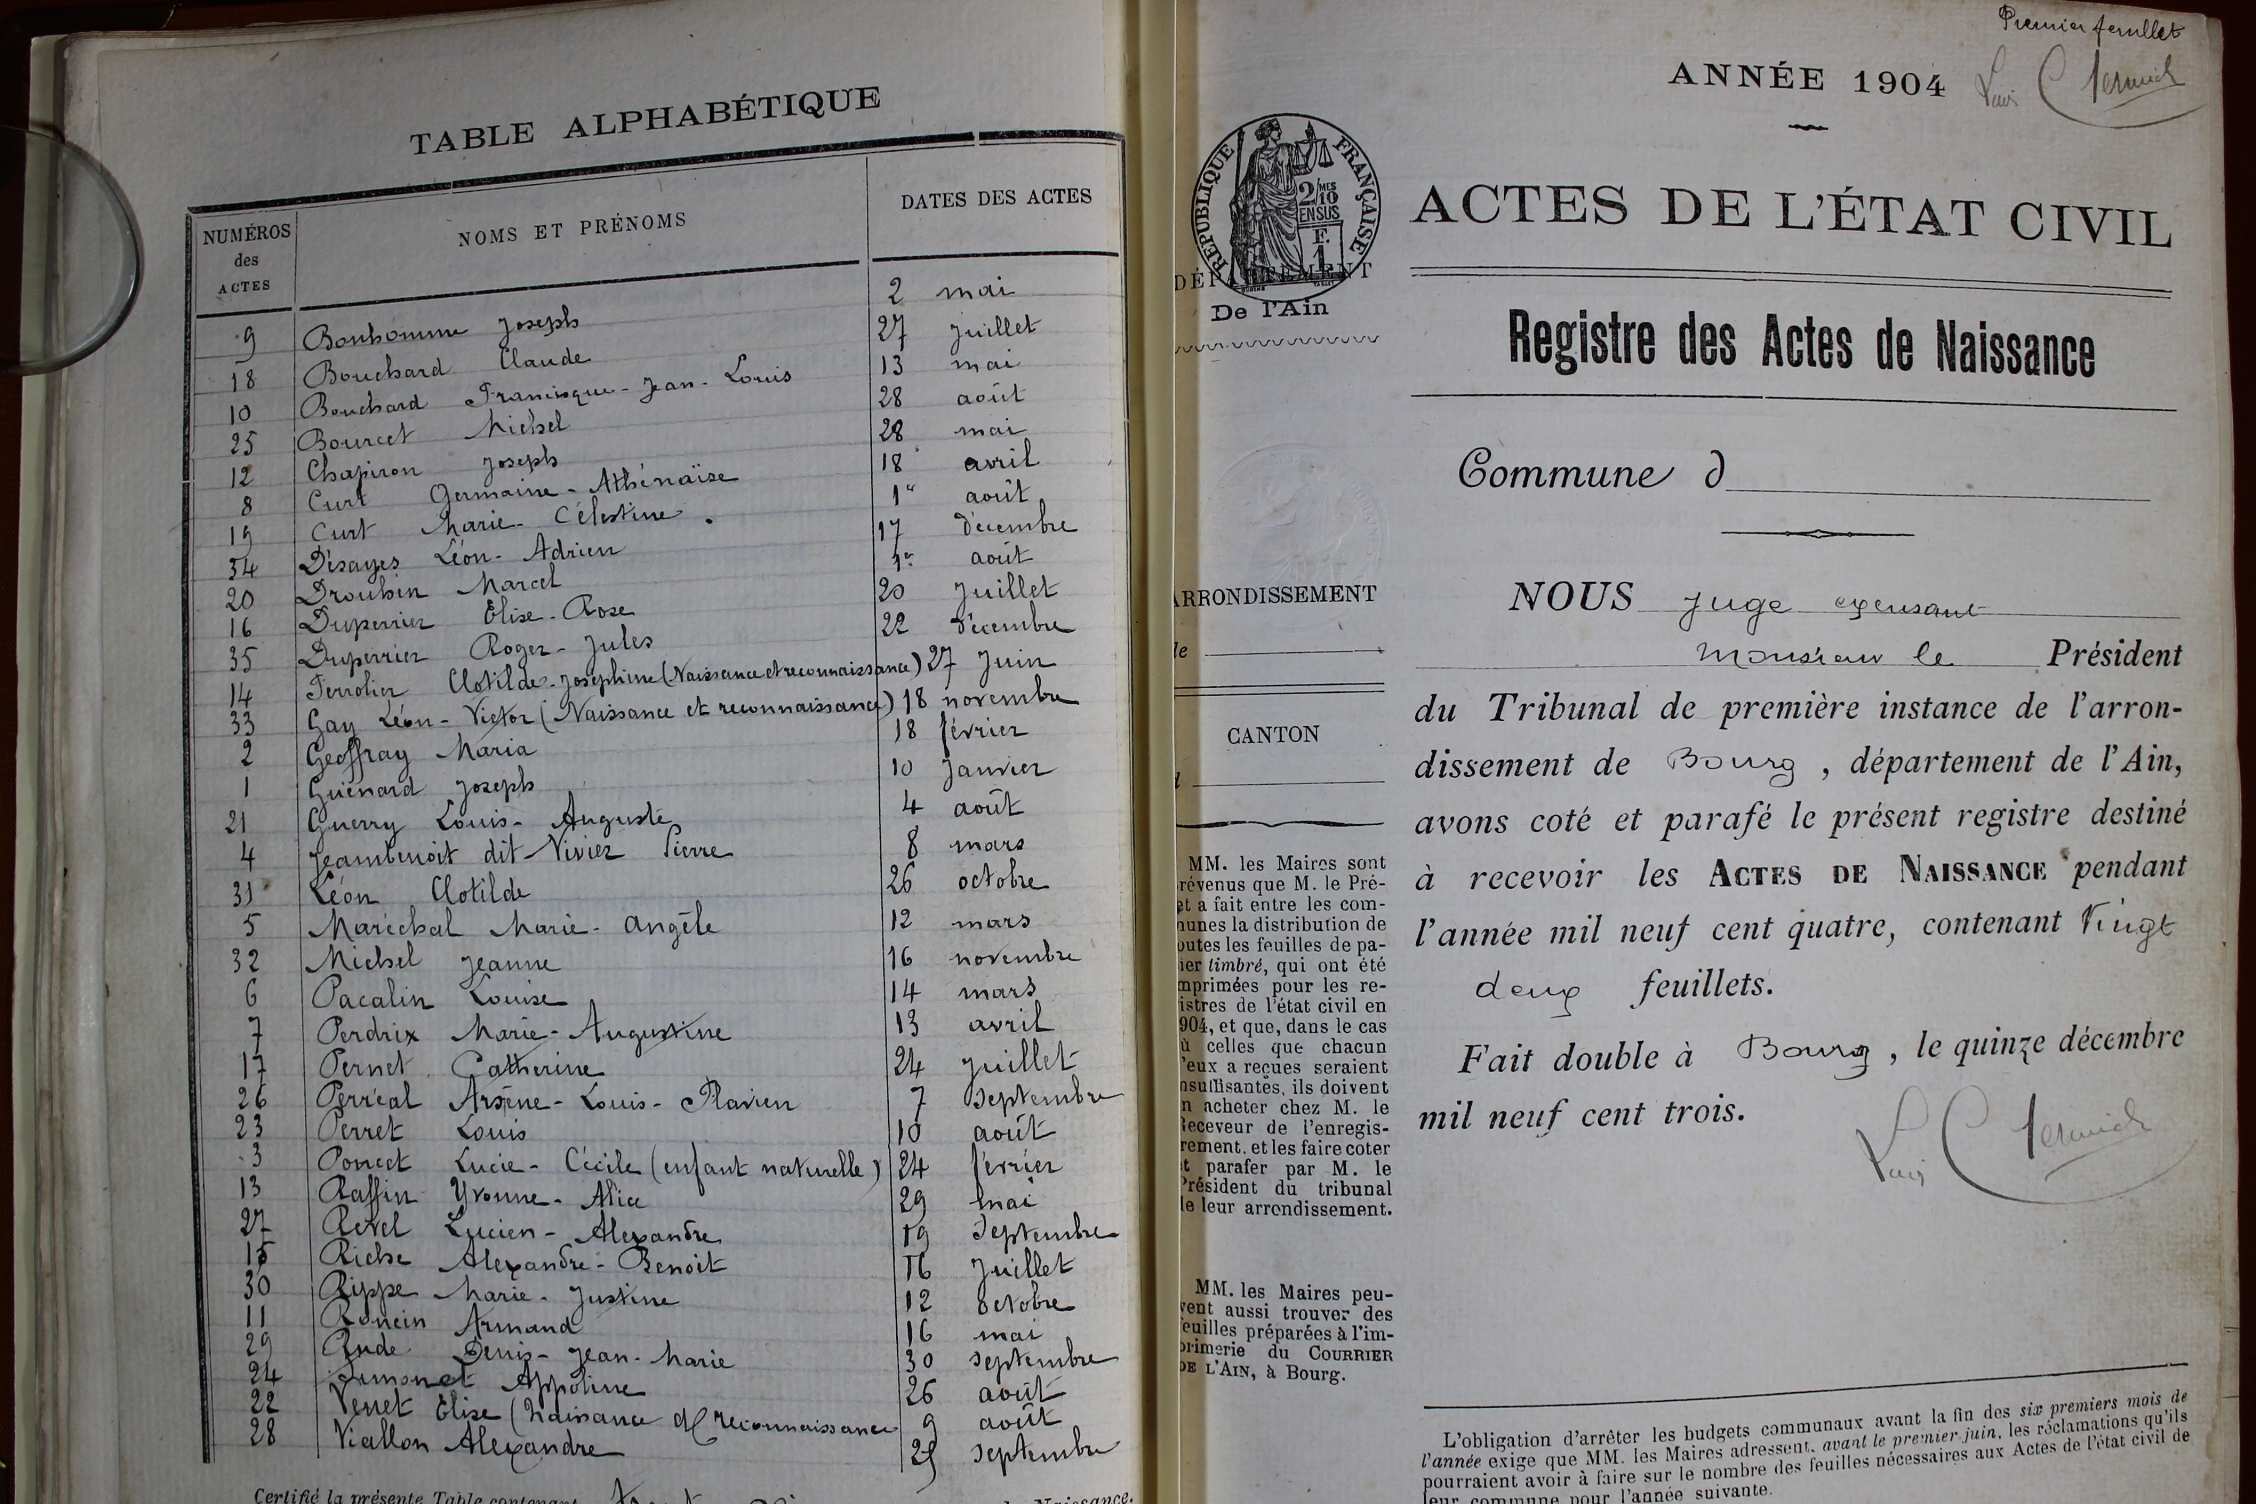 TABLE ALPHABÉTIQUE
NUMÉROS des ACTES NOMS ET PRÉNOMS DATES DES ACTES
9 Bonhomme Joseph 2 mai
18 Bouchard Claude 27 Juillet
10 Bouchard Francisque-Jean-Louis 13 mai
25 Bourcet Michel 28 août
12 Chapiron Joseph 28 mai
8 Curt Germaine-Athénaïse 18 avril
19 Curt Marie-Célestine 1er août
34 Désayes Léon-Adrien 17 décembre
20 Drouhin Marcel 1er août
16 Duperrier Elise-Rose 20 Juillet
35 Duperrier Roger-Jules 22 décembre
14 Ferrolier Clotilde-Joséphine (Naissance et reconnaissance) 27 Juin
33 Gay Léon-Victor (Naissance et reconnaissance) 18 novembre
2 Geoffray Maria 18 février
1 Guénard Joseph 10 Janvier
21 Guerry Louis-Auguste 4 août
4 Jeambenoit dit Vivier Pierre 8 mars
31 Léon Clotilde 26 octobre
5 Maréchal Marie-Angèle 12 mars
32 Michel Jeanne 16 novembre
6 Pacalin Louise 14 mars
7 Perdrix Marie-Augustine 13 avril
17 Pernet Catherine 24 Juillet
26 Perréal Arsène-Louis-Flavien 7 septembre
23 Perret Louis 10 août
3 Poncet Lucie-Cécile (enfant naturelle) 24 février
13 Raffin Yvonne-Alice 29 mai
27 Revel Lucien-Alexandre 19 Septembre
15 Riche Alexandre-Benoit 16 Juillet
30 Rippe Marie-Justine 12 octobre
11 Roncin Armand 16 mai
29 Rude Denis-Jean-Marie 30 septembre
24 Simonet Appoline 26 août
22 Venet Elise (Naissance et reconnaissance 9 août
28 Viallon Alexandre 25 septembre
Certifié la présente Table contenant
Premier feuillet
ANNÉE 1904
RÉPUBLIQUE FRANÇAISE
2/10MES
EN SUS
F.
1
DÉPARTEMENT
De l'Ain
ACTES DE L'ÉTAT CIVIL
Registre des Actes de Naissance
Commune d
ARRONDISSEMENT
de
CANTON
MM. les Maires sont
révenus que M. le Pré-
et a fait entre les com-
munes la distribution de
outes les feuilles de pa-
ier timbré, qui ont été
mprimées pour les re-
istres de l'état civil en
904, et que, dans le cas
ù celles que chacun
'eux a reçues seraient
nsuffisantes, ils doivent
n acheter chez M. le
Receveur de l'enregis-
rement, et les faire coter
et parafer par M. le
Président du tribunal
de leur arrondissement.
MM. les Maires peu-
vent aussi trouver des
feuilles préparées à l'im-
primerie du COURRIER
DE L'AIN, à Bourg.
NOUS Juge exerçant
Monsieur le Président
du Tribunal de première instance de l'arron-
dissement de Bourg, département de l'Ain,
avons coté et parafé le présent registre destiné
à recevoir les ACTES DE NAISSANCE pendant
l'année mil neuf cent quatre, contenant Vingt
deux feuillets.
Fait double à Bourg, le quinze décembre
mil neuf cent trois.
L'obligation d'arrêter les budgets communaux avant la fin des six premiers mois de
l'année exige que MM. les Maires adressent, avant le premier juin, les réclamations qu'ils
pourraient avoir à faire sur le nombre des feuilles nécessaires aux Actes de l'état civil de
leur commune pour l'année suivante.